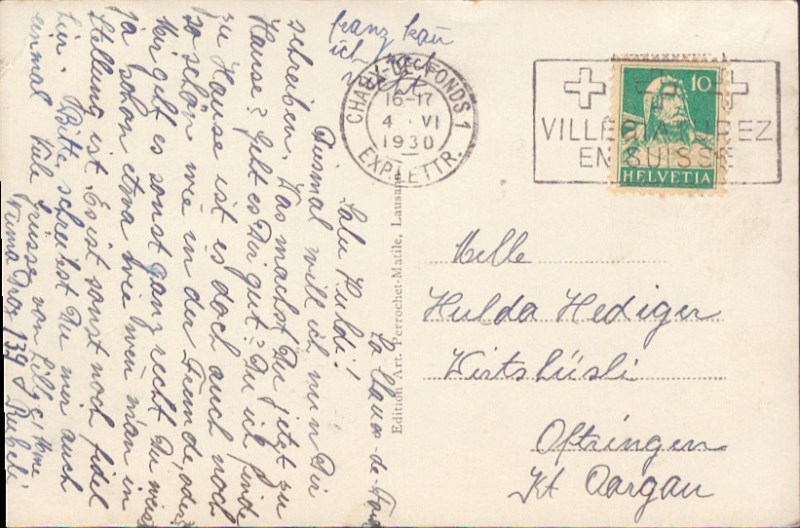 franz kan
ich noch
nicht
La Chaux-de-Fonds
Salu Huldi!
Diesmal will ich nun Dir
schreiben. Was machst Du jetzt zu
Hause? Geht es Dir gut? Du ich finde
zu Hause ist es doch auch noch
so schön wie in der Fremde, oder
Mir geht es sonst ganz recht Du weisst
ja schon etwa wie wen man in
Stellung ist. Es ist sonst noch fidel
hier. Bitte, schreibst Du mir auch
einmal Viele Grüsse von Lilly
Numa Droz 139
CHAUX-DE-FONDS 1
16-17
4 · VI
1930
EXP. LETTR.
VILLÉGIATUREZ
EN SUISSE
10
HELVETIA
Edition Art. Perrochet-Matile, Lausanne
Melle
Hulda Hediger
Wirtshüsli
Oftringen
Kt Aargau